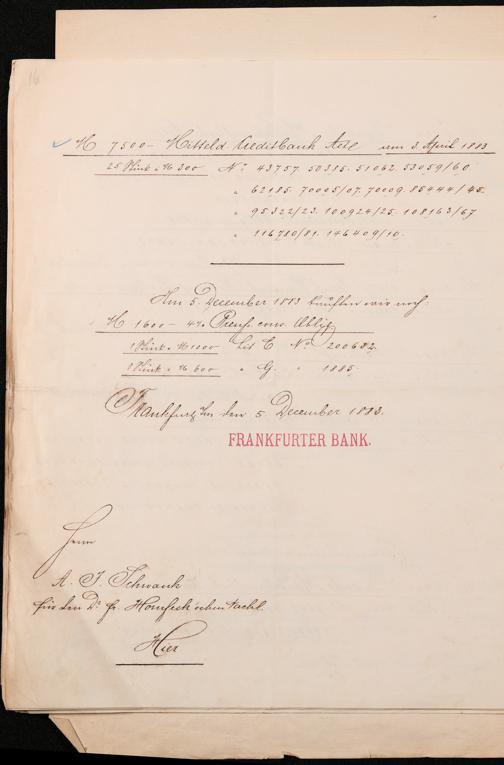 16
M 7500 - Mitteld Creditbank Act am 3. April 1883
25 Stück a M 300 No. 43757. 50315. 51062. 53059/60.
" 62185. 70005/07. 70009. 85444/45.
" 95322/23. 100924/25. 108163/67
" 116780/81. 146409/10.
Am 5. December 1883 kauften wir noch:
M 1600 - 4% Preuss. cons. Oblig
1 Stück a M 1000 Lit E No. 200682.
1 Stück a M 600 " G. " 1885.
Frankfurt a/m den 5. December 1883.
FRANKFURTER BANK.
Herrn
A. J. Schwank
für den Dr. fr. Nachl.
Hier